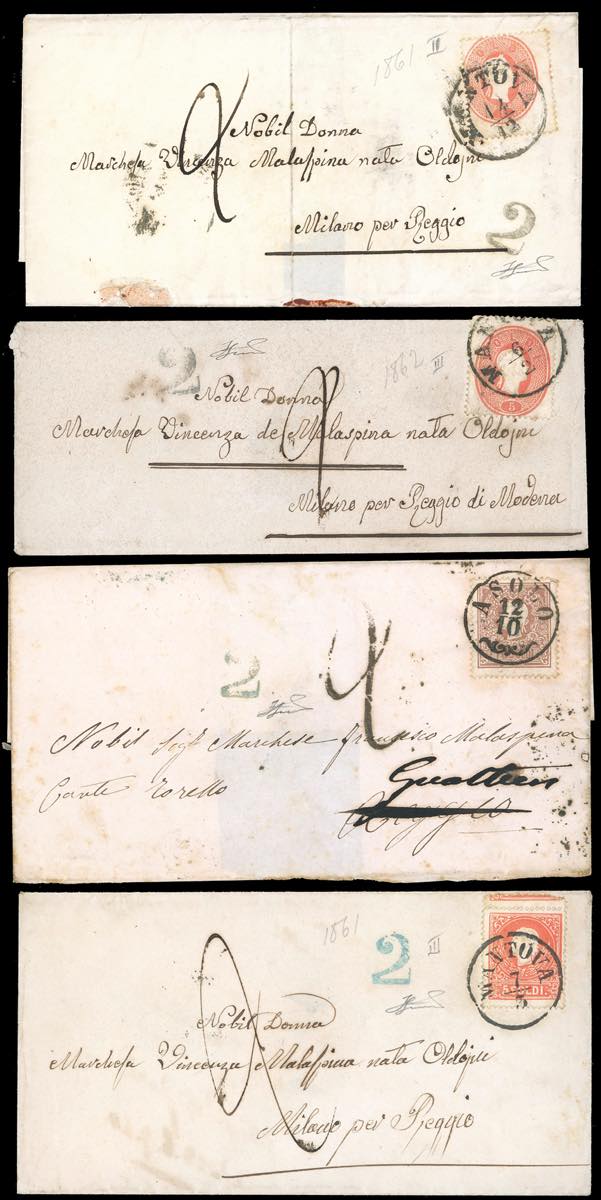 1861 II
MANTOVA
14/12
2
Nobil Donna
Marchesa Vincenza Malaspina nata Oldojni
Milano per Reggio
2
MANTOVA
2
1862 III
5
Nobil Donna
2
Marchesa Vincenza de Malaspina nata Oldojni
Milano per Reggio di Modena
ASOLO
12
10
2
2
Nobil Sigr Marchese Francesco Malaspina
Conte Torello
Reggio
MANTOVA
7
5 SOLDI
1861
2 III
2
Nobil Donna
Marchesa Vincenza Malaspina nata Oldojni
Milano per Reggio